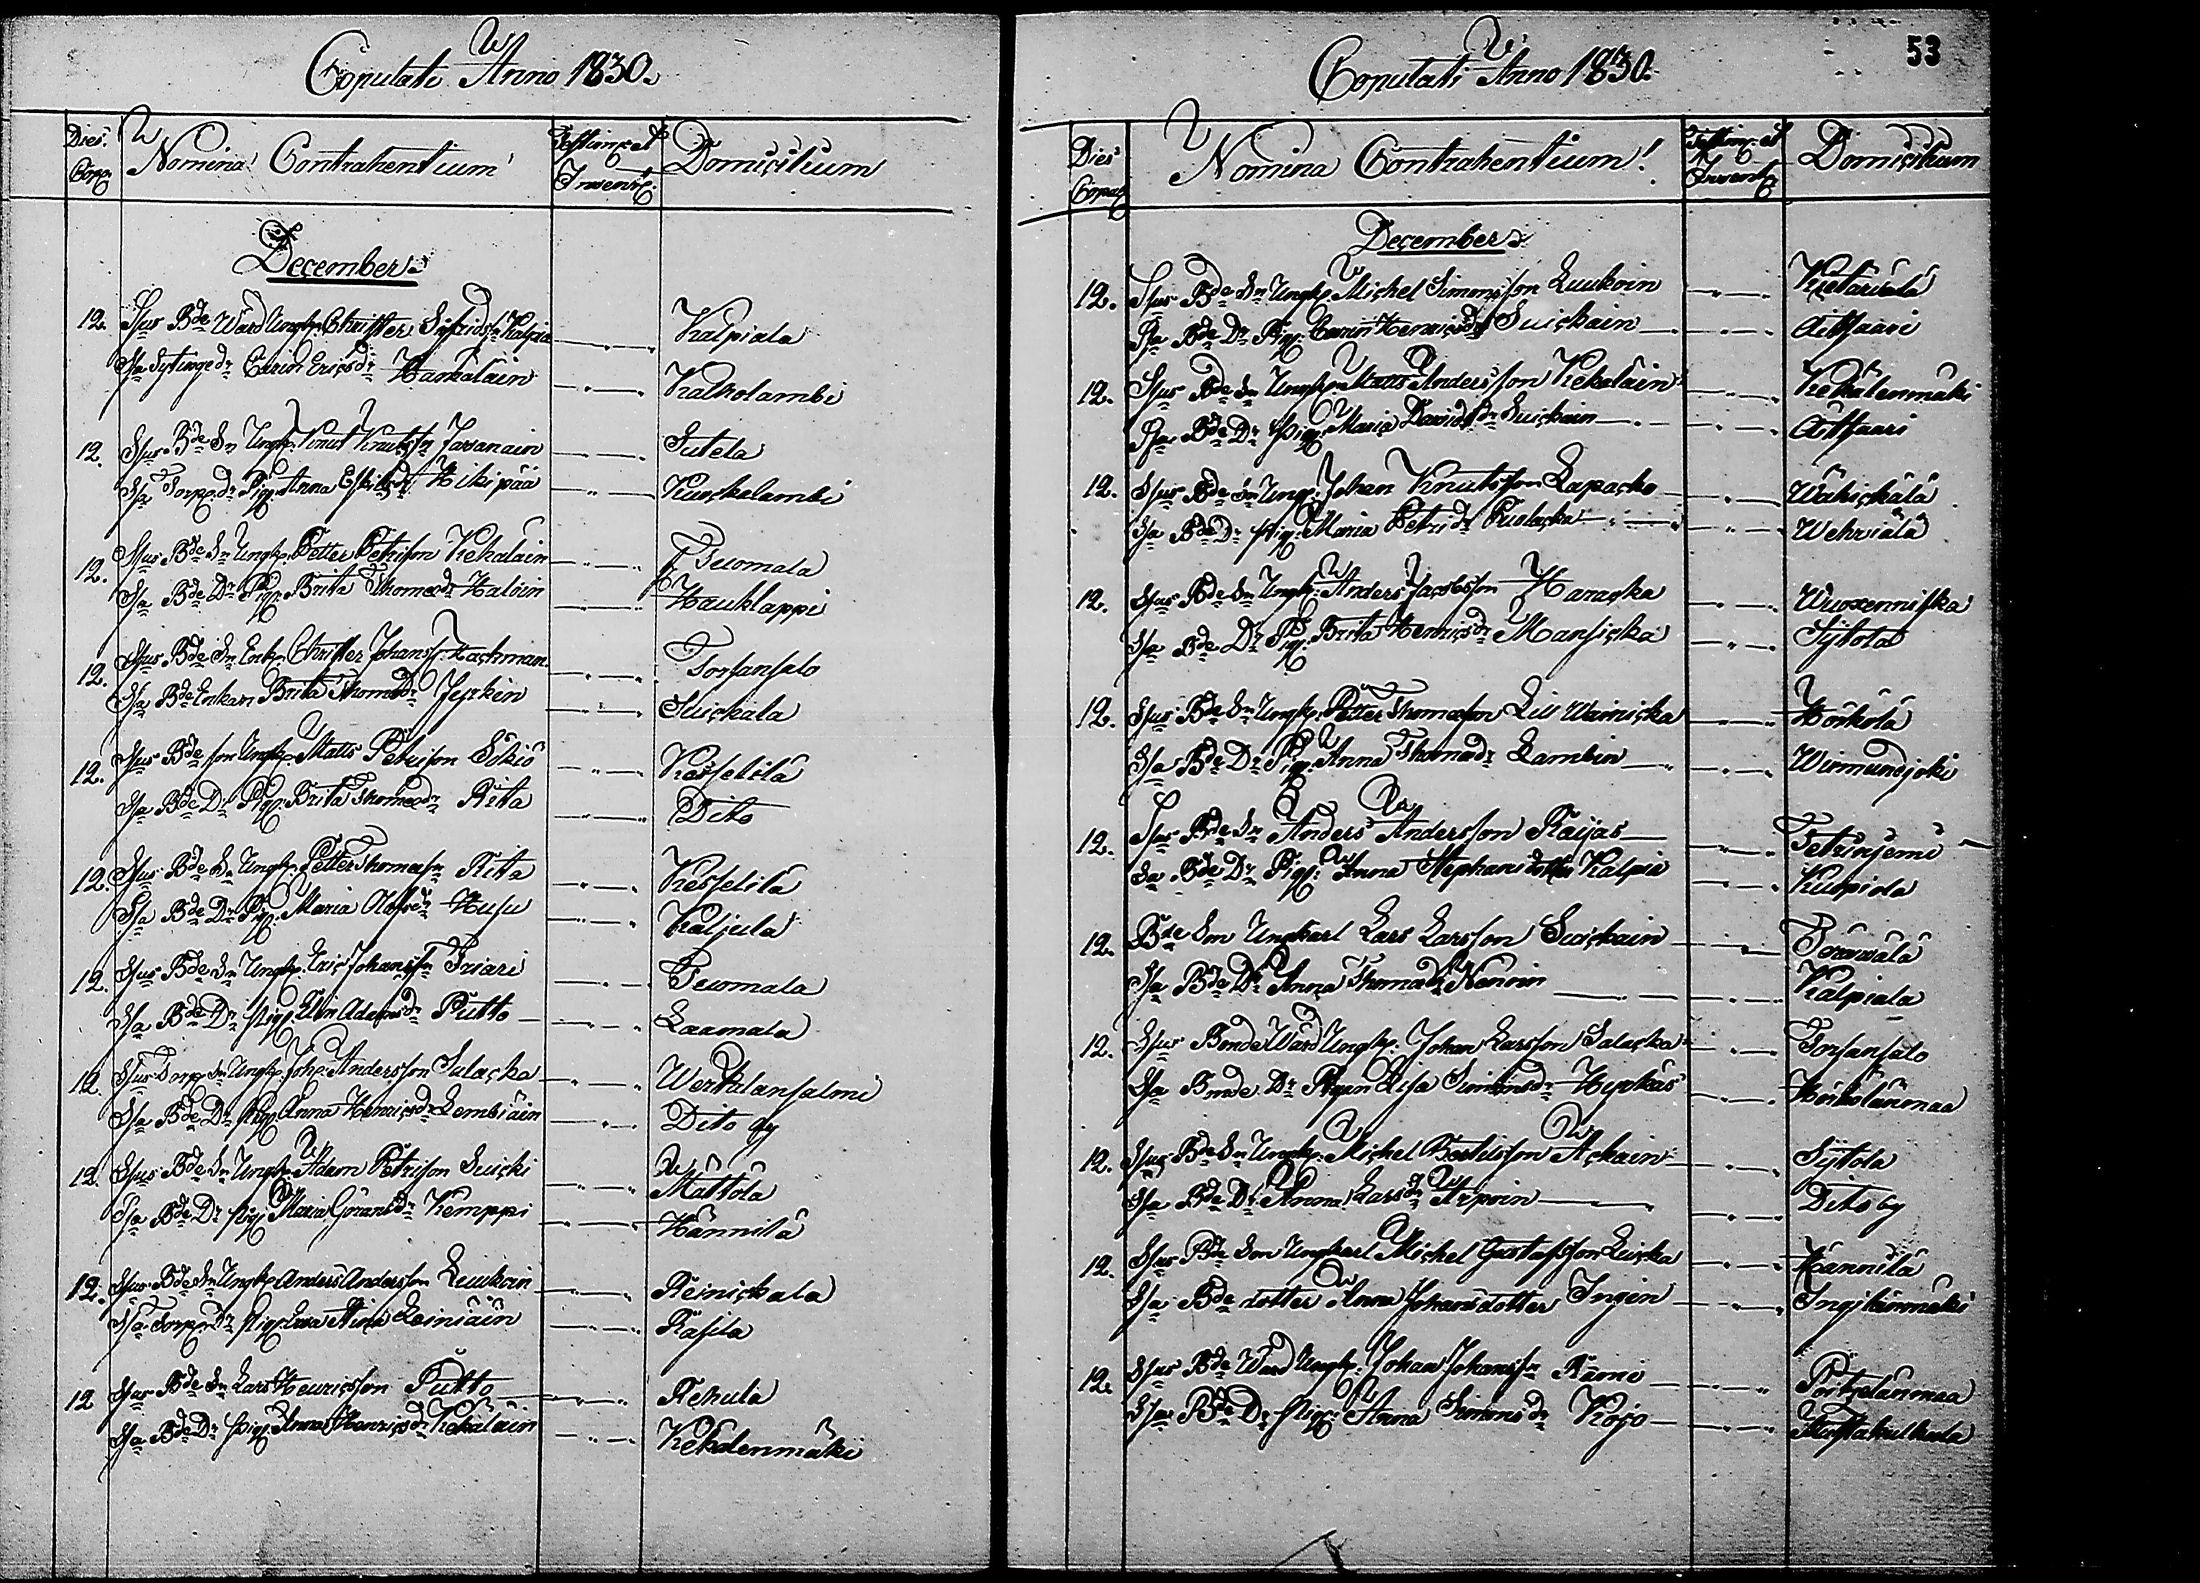 Copulati Anno 1830.
Dies Cop. Nomina Contrahentium Domicilium
December
12. Spus Bde Wärd Ungk. Christer Sigfridss. Kalpia Kalpiala
Spa Sytingedr Carin Ericsdr Karkälain Kalkolambi
12. Spus Bde Sn Ungk. Knut Knutsn Javanain Sutela
Spa Torp. dr Pig. Anna Eskilsdr Hikipää Kuickalambi
12. Spus Bde Sn Ungk. Petter Petrisson Kekäläin Peuomala
Spa Bde Dr Pig. Brita Thomædr Haloin Hauklappi
12. Spus Bde Sn Enkl. Christer Johanss. Hackman Torsansalo
Spa Bde Enkan Brita Thomædr Jepkin Suickala
12. Spus Bde son Ungk. Matts Petrisson Sökiö Kesselilä
Spa Bde Dr Pig. Brita Thomædr Rita Dito
12. Spus Bde Sn Ungk. Petter Thomæsn Rita Kesselilä
Spa Bde Dr Pig. Maria Olofsdr Husu Kaljula
12. Spus Bde Sn Ungk. Eric Johanssn Friari Peuomala
Spa Bde Dr Pig. Elin Adamsdr Putto Laamala
12. Spus Torp. Sn Ungk. Joh. Andersson Salacka Werklansalmi
Spa Bde Dr Pig. Anna Henricsdr Lembiäin Dito by
12. Spus Bde Sn Ungk. Adam Petrisson Suicki Mättölä
Spa Bde Dr Pig. Maria Göransdr Kemppi Hännilä
12. Spus Bde Sn Ungk. Anders Andersson Luukoin Reinickala
Spa Torp. dr Pig. Ewa Stina Leiniäin Rasila
12 Spus Bde Sn Lars Henricsson Putto Rehula
Spa Bde Dr Pig. Anna Henricsdr Kekäläin Kekälenmäki
53
Copulati Anno 1830.
Dies Copul. Nomina Contrahentium Domicilium
December
12. Spus Bde Sn Ungk. Michel Simonsson Luukoin
Spa Bde Dr Pig. Carin Henricsdr Suickain Äitsaari
12. Spus Bde Sn Ungk. Matts Andersson Kekäläin Kekälenmäki
Spa Bde Dr Pig. Maria Davidsdr Suickain Äitsaari
12. Spus Bde Sn Ungk. Johan Knutsson Lapacko Wähickälä
Spa Bde Dr Pig. Maria Petri dr Puolacka Wehviälä
12. Spus Bde Sn Ungk. Anders Jacobsson Haracka Wuoxenniska
Spa Bde Dr Pig. Brita Henricsdr Mansicka Sÿtola
12. Spus Bde Sn Ungk. Petter Thomæson Lill Wainicka Hörkölä
Spa Bde Dr Pig. Anna Thomædr Lambin Wirmundjoki
12. Spus Bde Sn Anders Andersson Raijas Tetrinjemi
Spa Bde Dr Pig. Anna Stephansdotter Kalpia Kalpiala
12. Bde Son Ungkarl Lars Larsson Suickain
Spa Bde Dr Anna Thomædr Kalpiala
12. Spus Bonde Wärd Ungk. Johan Larsson Salacka Torsansalo
Spa Bonde Dr Pigan Lisa Simonsdr Hyrkäs Hörkölänmaa
12. Spus Bde Sn Ungk. Michel Bertilsson Ackain Sÿtola
Spa Bde Dr Anna Larsdr Arpoin Dito by
12. Spus Bde Son Ungkarl Michel Gustafsson Luicka Hännilä
Spa Bde dotter Anna Johansdotter Ingin Ingilänmäki
12. Spus Bde Wärd Ungk. Johan Johanssn Rämi Portzelänmaa
Spa Bde Dr Pig. Anna Simonsdr Kojo Mustakulkula